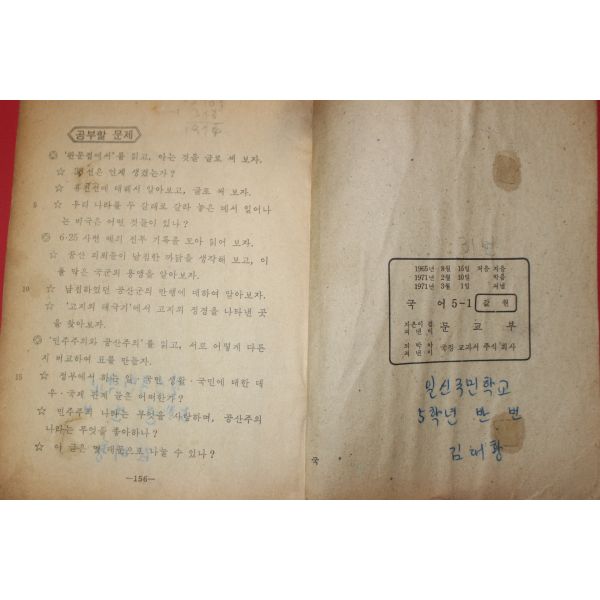 공부할 문제
◎ '판문점에서'를 읽고, 아는 것을 글로 써 보자.
☆ 언제 생겼는가?
☆ 휴전선에 대해서 알아보고, 글로 써 보자.
5 ☆ 우리 나라를 두 갈래로 갈라 놓은 데서 일어나
는 비극은 어떤 것들이 있나?
◎ 6·25 사변 때의 전투 기록을 모아 읽어 보자.
☆ 공산 괴뢰들이 남침한 까닭을 생각해 보고, 이
를 막은 국군의 용맹을 알아보자.
10 ☆ 남침하였던 공산군의 만행에 대하여 알아보자.
☆ '고지의 태극기'에서 고지의 정경을 나타낸 곳
을 찾아보자.
◎ '민주주의와 공산주의'를 읽고, 서로 어떻게 다른
지 비교하여 표를 만들자.
15 ☆ 정부에서 하는 일·국민 생활·국민에 대한 대
우·국제 관계 같은 어떠한가?
☆ 민주주의 나라는 무엇을 사랑하며, 공산주의
나라는 무엇을 좋아하나?
☆ 이 글은 몇 대문으로 나눌 수 있나?
—156—
1965년 8월 15일 처음 지음
1971년 2월 10일 박음
1971년 3월 1일 펴냄
국어 5-1
지은이 겸
펴낸이
문교부
펴낸이 국정 교과서 주식 회사
일신국민학교
5학년 반 번
김대황
국